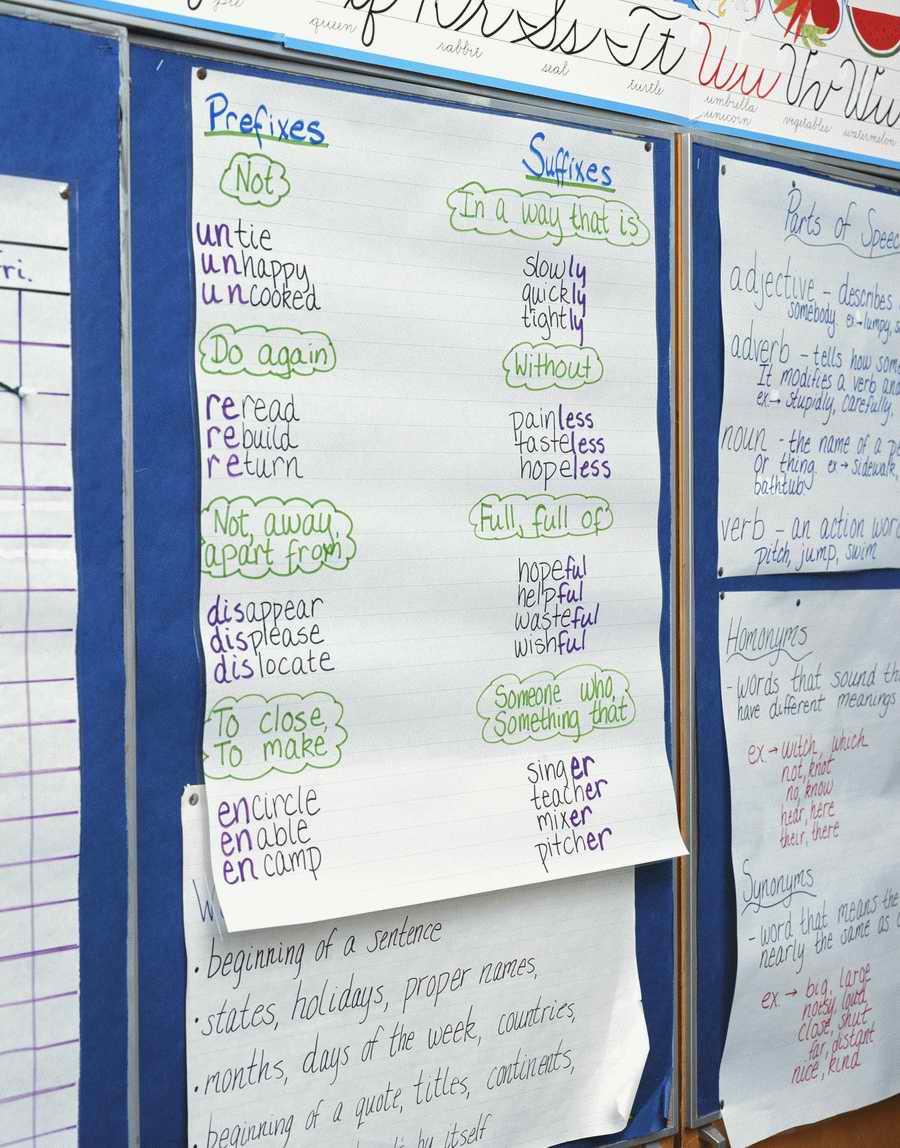 Rr Ss Tt Uu Vv Ww
queen rabbit seal turtle umbrella unicorn vegetables watermelon
Fri.
Prefixes
Not
untie
unhappy
uncooked
Do again
reread
rebuild
return
Not, away,
apart from,
disappear
displease
dislocate
To close,
To make
encircle
enable
encamp
Suffixes
In a way that is
slowly
quickly
tightly
Without
painless
tasteless
hopeless
Full, full of
hopeful
helpful
wasteful
wishful
Someone who,
Something that
singer
teacher
mixer
pitcher
• beginning of a sentence
• states, holidays, proper names,
• months, days of the week, countries,
• beginning of a quote, titles, continents,
by itself
Parts of Speec
adjective - describes
somebody ex→lumpy, s
adverb - tells how som
It modifies a verb and
ex→ stupidly, carefully,
noun - the name of a pe
or thing ex→ sidewalk,
bathtub
verb - an action word
pitch, jump, swim
Homonyms
-words that sound th
have different meanings
ex→witch, which
not, knot
no, know
hear, here
their, there
Synonyms
-word that means the
nearly the same as
ex.→ big, large
noisy, loud
close, shut
far, distant
nice, kind